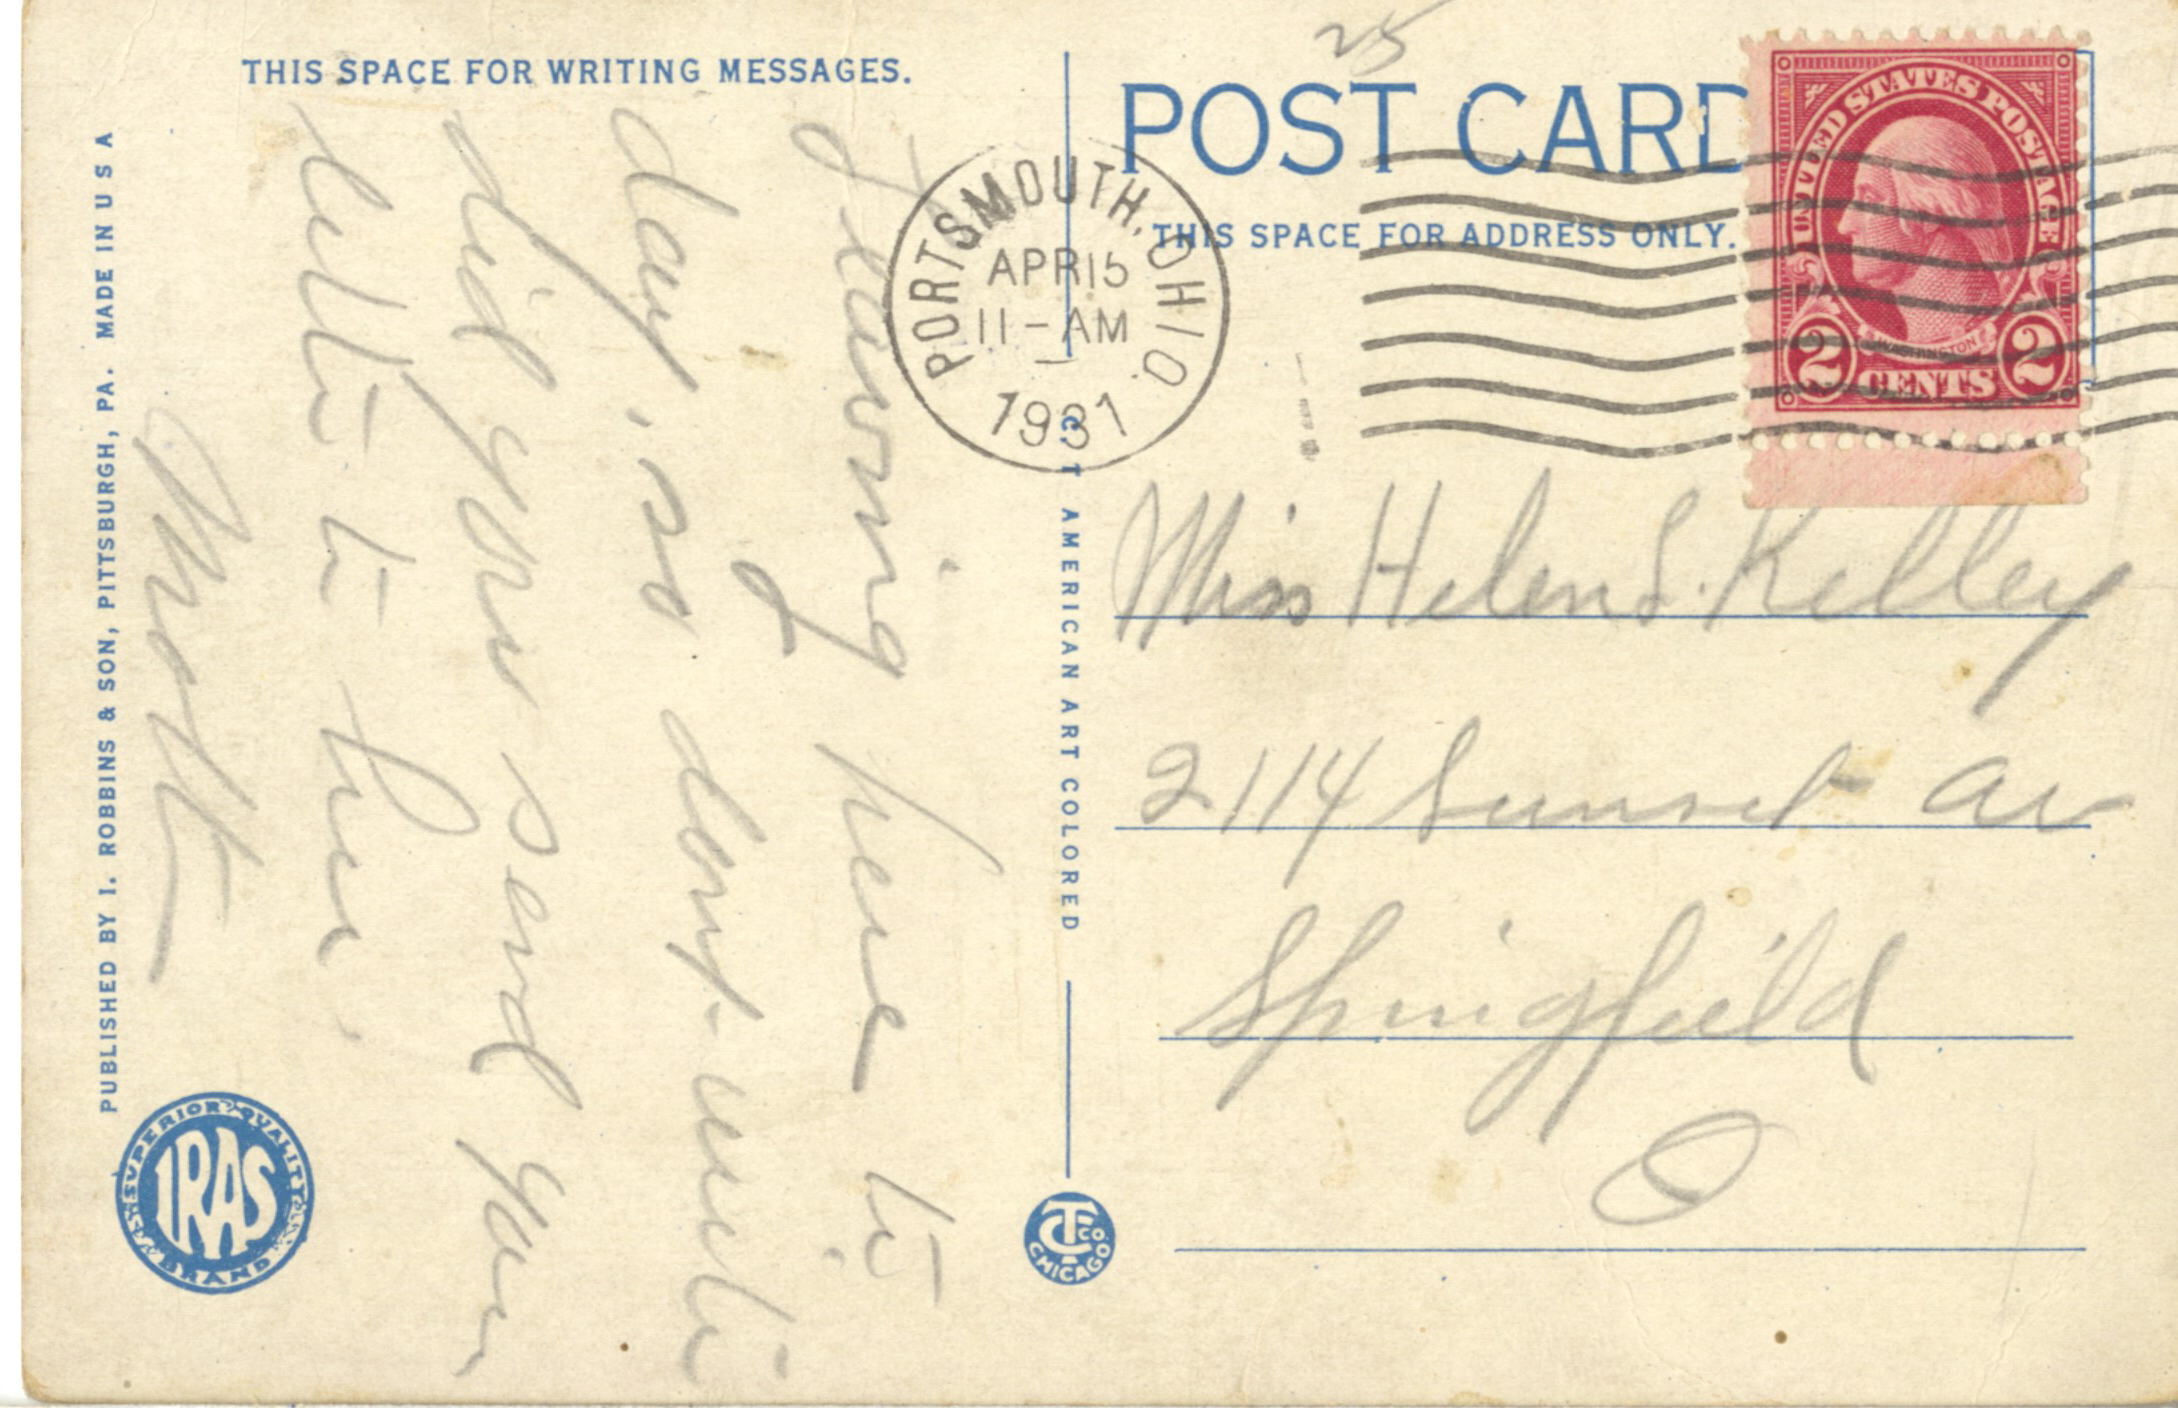 THIS SPACE FOR WRITING MESSAGES.
Leaving here to
day, so don't write
did you s and your
letter to her
PUBLISHED BY I. ROBBINS & SON, PITTSBURGH, PA. MADE IN U S A
SUPERIOR QUALITY
IRAS
BRAND
C. T. AMERICAN ART COLORED
CTCO.
CHICAGO
25
POST CARD
THIS SPACE FOR ADDRESS ONLY.
PORTSMOUTH, OHIO.
APR 15
11-AM
1931
UNITED STATES POSTAGE
WASHINGTON
2 CENTS 2
Miss Helen L. Kelley
2114 Sunset Av
Springfield
O